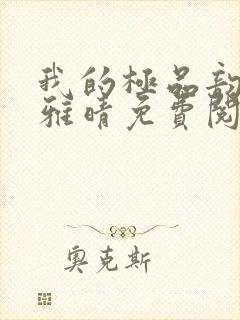 我的極品
雅晴免費閱
奧克斯